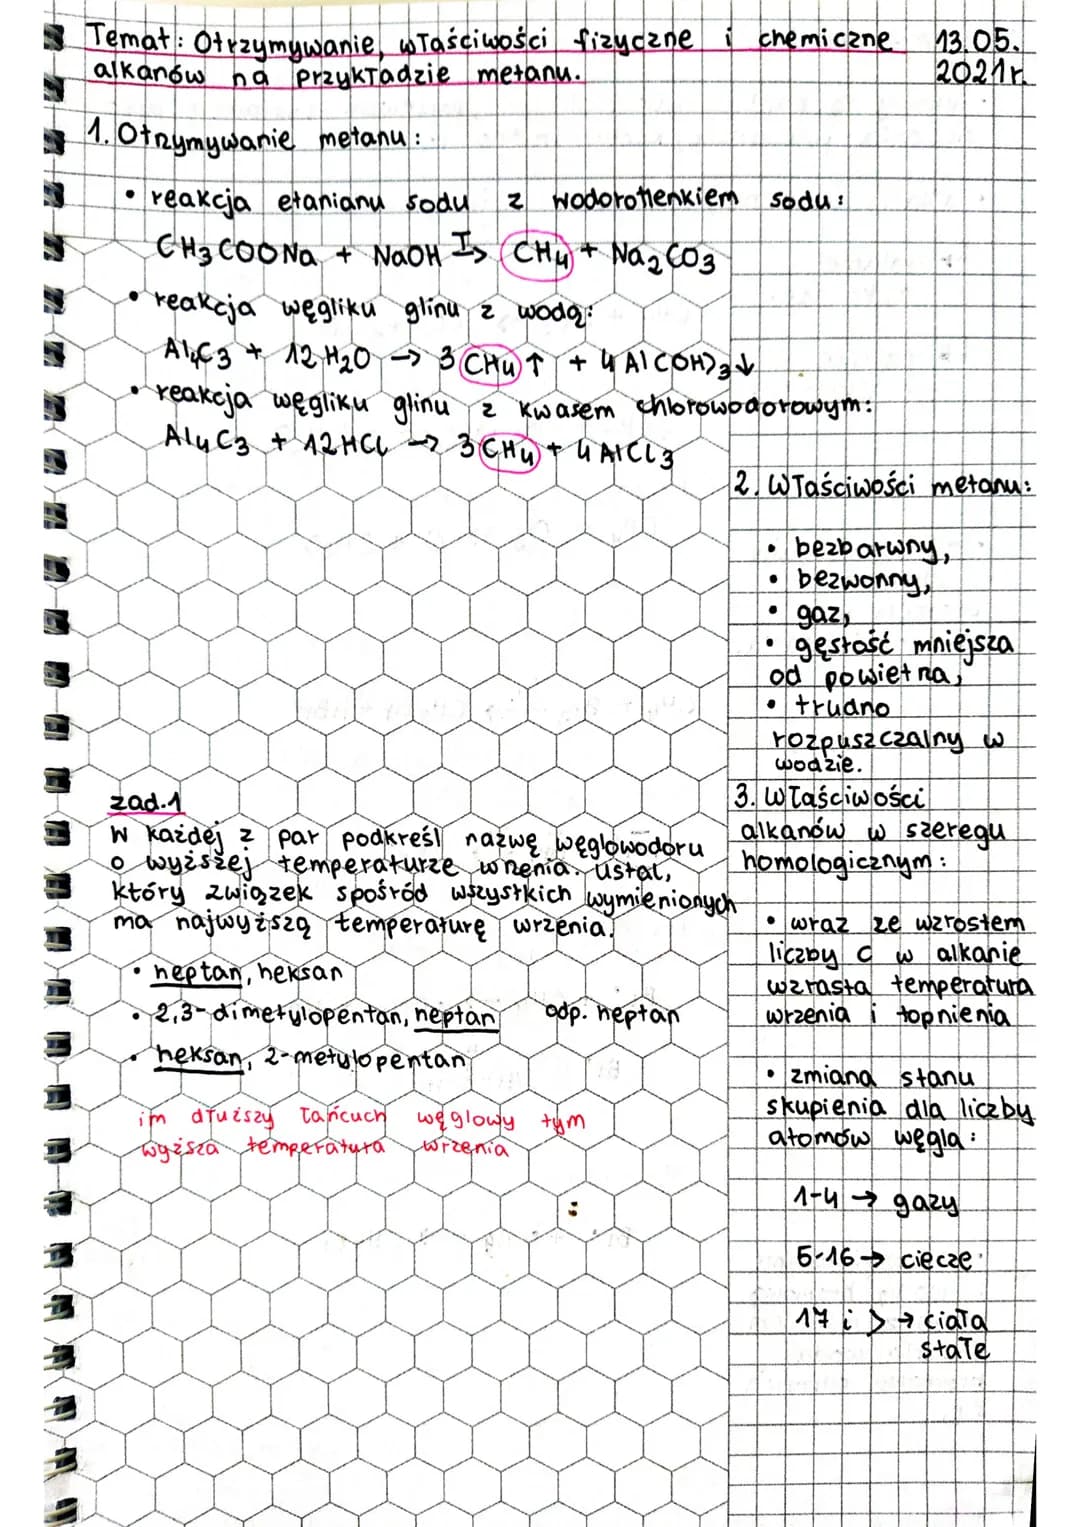 Temat: Otrzymywanie, właściwości fizyczne i chemiczne 13.05.
alkanów na przykładzie metanu. 2021r.
1. Otrzymywanie metanu:
• reakcja etanianu sodu z wodorotlenkiem sodu:
CH3COONa + NaOH T→ CH4 + Na2CO3
• reakcja węgliku glinu z wodą:
Al4C3 + 12H2O → 3CH4↑ + 4Al(OH)3↓
• reakcja węgliku glinu z kwasem chlorowodorowym:
Al4C3 + 12HCl → 3CH4 + 4AlCl3
2. Właściwości metanu:
• bezbarwny,
• bezwonny,
• gaz,
• gęstość mniejsza
od powietrza,
• trudno
rozpuszczalny w
wodzie.
zad.1
W każdej z par podkreśl nazwę węglowodoru
o wyższej temperaturze wrzenia. Ustal,
który związek spośród wszystkich wymienionych
ma najwyższą temperaturę wrzenia.
• heptan, heksan
• 2,3-dimetylopentan, heptan odp. heptan
• heksan, 2-metylopentan
im dłuższy łańcuch węglowy tym
wyższa temperatura wrzenia
3. Właściwości
alkanów w szeregu
homologicznym:
• wraz ze wzrostem
liczby C w alkanie
wzrasta temperatura
wrzenia i topnienia
• zmiana stanu
skupienia dla liczby
atomów węgla:
1-4 → gazy
5-16 → ciecze
17 i > → ciała
stałe